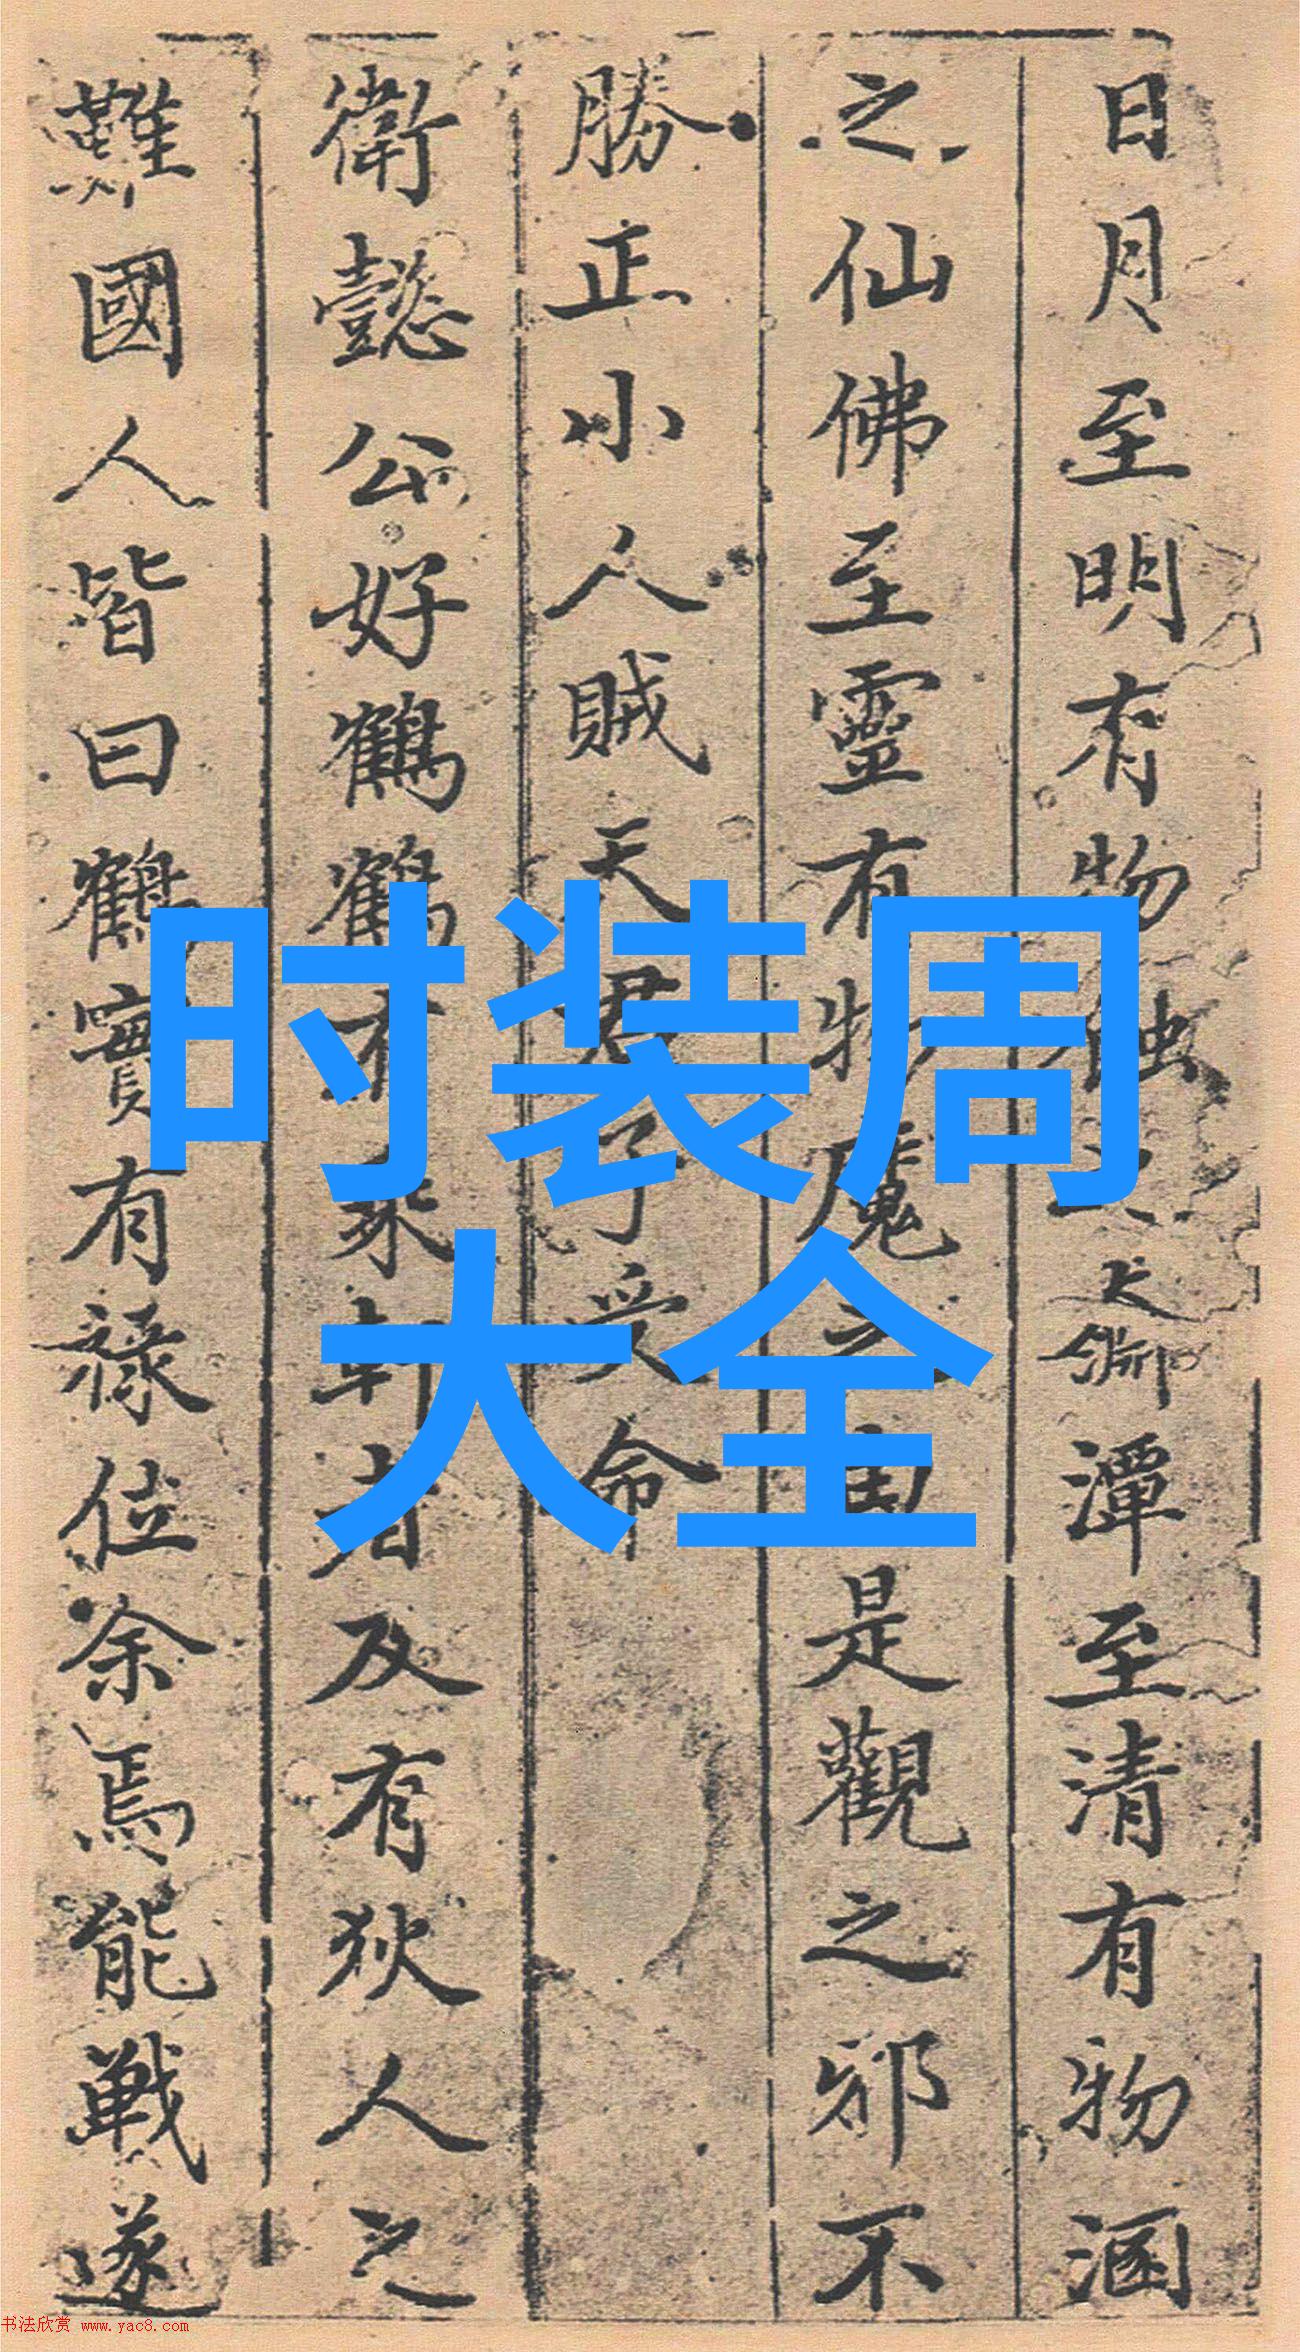 日月至明有物
潭至清有物涵
之仙佛至靈有物魔之由是觀之邪不
勝正小人賊天君子受命
衛懿公好鶴鶴有乘軒者及有狄人之
難國人皆曰鶴實有祿位余焉能戰遂
时装周
大全
书法欣赏 www.yac8.com